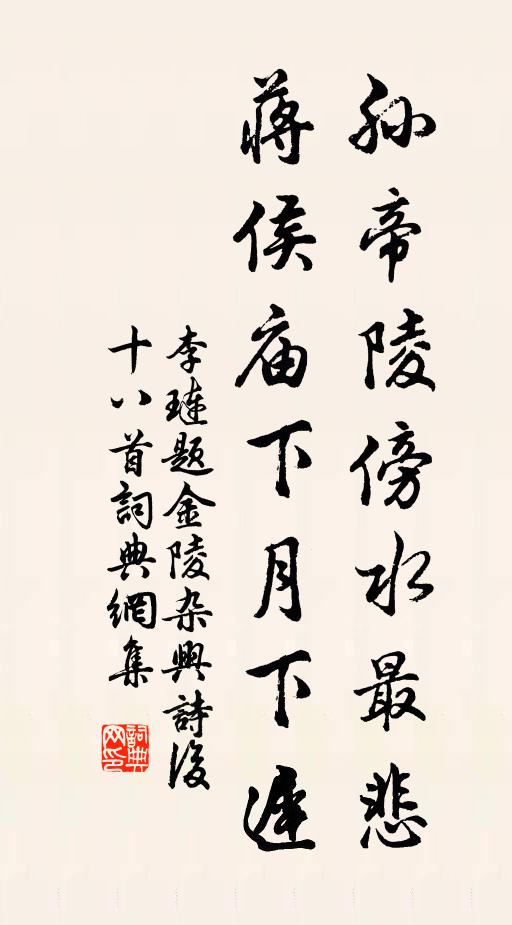 孙帝陵傍水最悲
蒋侯庙下月下遲
李璉题金陵杂興詩後
十八首詞典網集
詞典網印